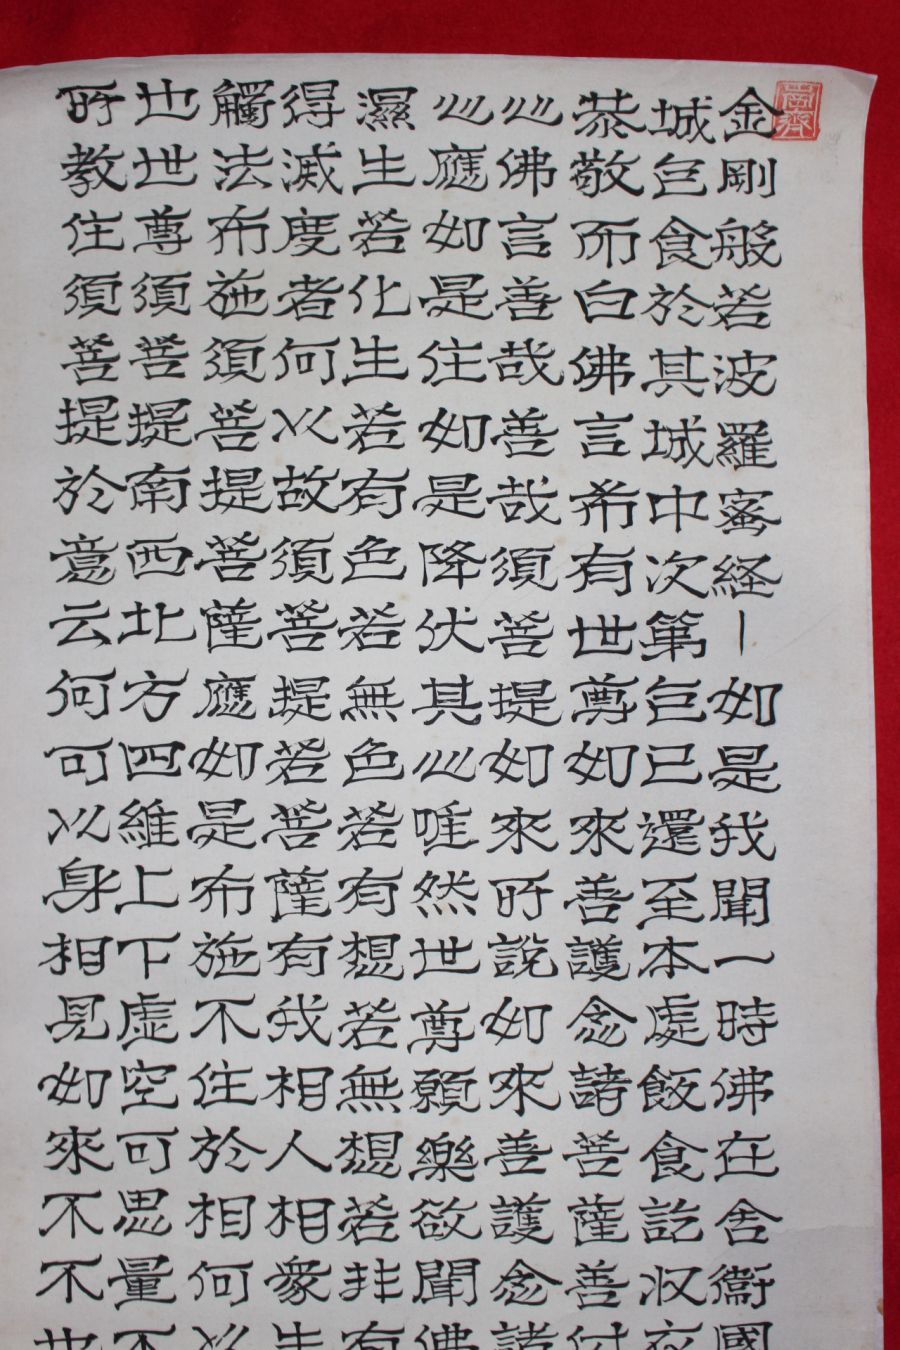 金剛般若波羅蜜経｜如是我聞一時佛在舍衞國
城乞食於其城中次第乞已還至本處飯食訖収衣
恭敬而白佛言希有世尊如來善護念諸菩薩善付
心佛言善哉善哉須菩提如來所説如來善護念諸
心應如是住如是降伏其心唯然世尊願樂欲聞佛
濕生若化生若有色若無色若有想若無想若非有
得滅度者何以故須菩提若菩薩有我相人相衆生
觸法布施須菩提菩薩應如是布施不住於相何以
也世尊須菩提南西北方四維上下虛空可思量不
所教住須菩提於意云何可以身相見如來不不也